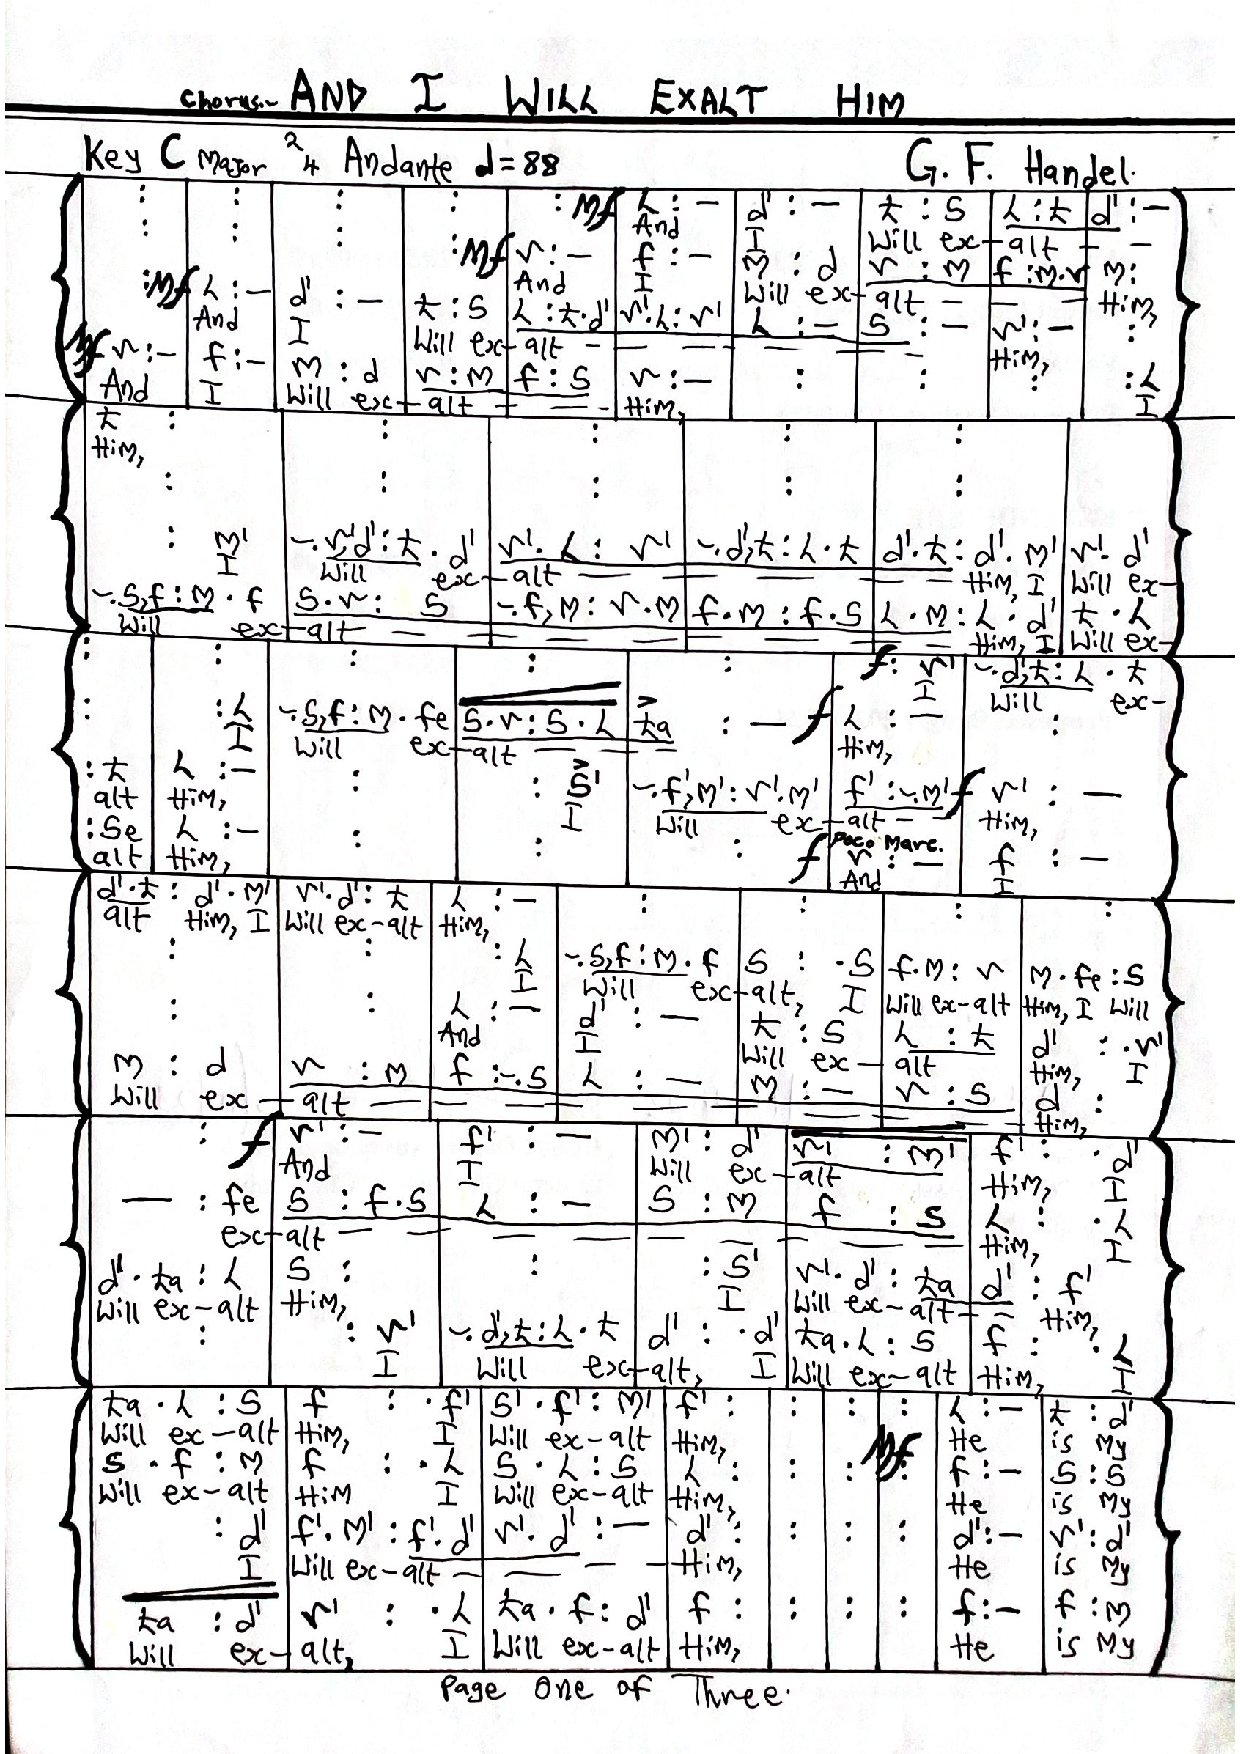 Chorus.- AND I WILL EXALT HIM
Key C Major 2/4 Andante d=88 G. F. Handel.
: : : : : Mf L : – d' : – t : S L : t d' : –
And I Will ex- alt – –
: : : : Mf r : – f : – M : d r : M f : M.r M :
And I Will ex- alt – – – Him,
: Mf L : – d' : – t : S L : t.d' r'.L : r' L : – S : – r' : – :
And I Will ex- alt – – – – – – Him,
Mf r : – f : – M : d r : M f : S r : – : : : : L
And I Will ex- alt – – Him, I
t : : : : :
Him,
: : : : :
: M' -.r',d' : t . d' r'. L : r' -.d',t : L . t d'. t : d'. M' r'. d'
I Will ex- alt – – – – – Him, I Will ex-
-.S,f : M . f S . r : S -.f,M : r . M f . M : f . S L . M : L . d' t . L
Will ex- alt – – – – – – Him, I Will ex-
: : : : : f : r' -.d',t : L . t
I Will ex-
: : L -.S,f : M . fe S . r : S . L ta : – f L : – :
I Will ex- alt – – – Him,
: t L : – : : S' -.f',M' : r'.M' f' : -.M' f r' : –
alt Him, I Will ex- alt – Him,
: Se L : – : : : f Poco Marc. r : – f : –
alt Him, And I
d'. t : d'. M' r'. d' : t L : – : : : :
alt Him, I Will ex-alt Him,
: : : L -.S,f : M . f S : . S f . M : r M . fe : S
I Will ex- alt, I Will ex-alt Him, I Will
: : L : – d' : – t : S L : t d' : . r'
And I Will ex- alt Him, I
M : d r : M f : -.S L : – M : – r : S d :
Will ex- alt – – – – – – Him,
: f r' : – f' : – M' : d' r' : M' f' : d'
And I Will ex- alt Him, I
– : fe S : f . S L : – S : M f : S L : . L
ex- alt – – – – – – Him, I
d'. ta : L S : : : S' r'. d' : ta d' : f'
Will ex-alt Him, I Will ex-alt – Him,
: : r' -.d',t : L . t d' : . d' ta . L : S f : L
I Will ex-alt, I Will ex-alt Him, I
ta . L : S f : f' S'. f' : M' f' : : : : L : – t : d'
Will ex-alt Him, I Will ex-alt Him, He is My
S . f : M f : . L S . L : S L : : : Mf : f : – S : S
Will ex-alt Him I Will ex-alt Him, He is My
: d' f'. M' : f'. d' r'. d' : – d' : : : : d' : – r' : d'
I Will ex-alt – – – – Him, He is My
ta : d' r' : . L ta . f : d' f : : : : f : – f : M
Will ex- alt, I Will ex-alt Him, He is My
Page One of Three.